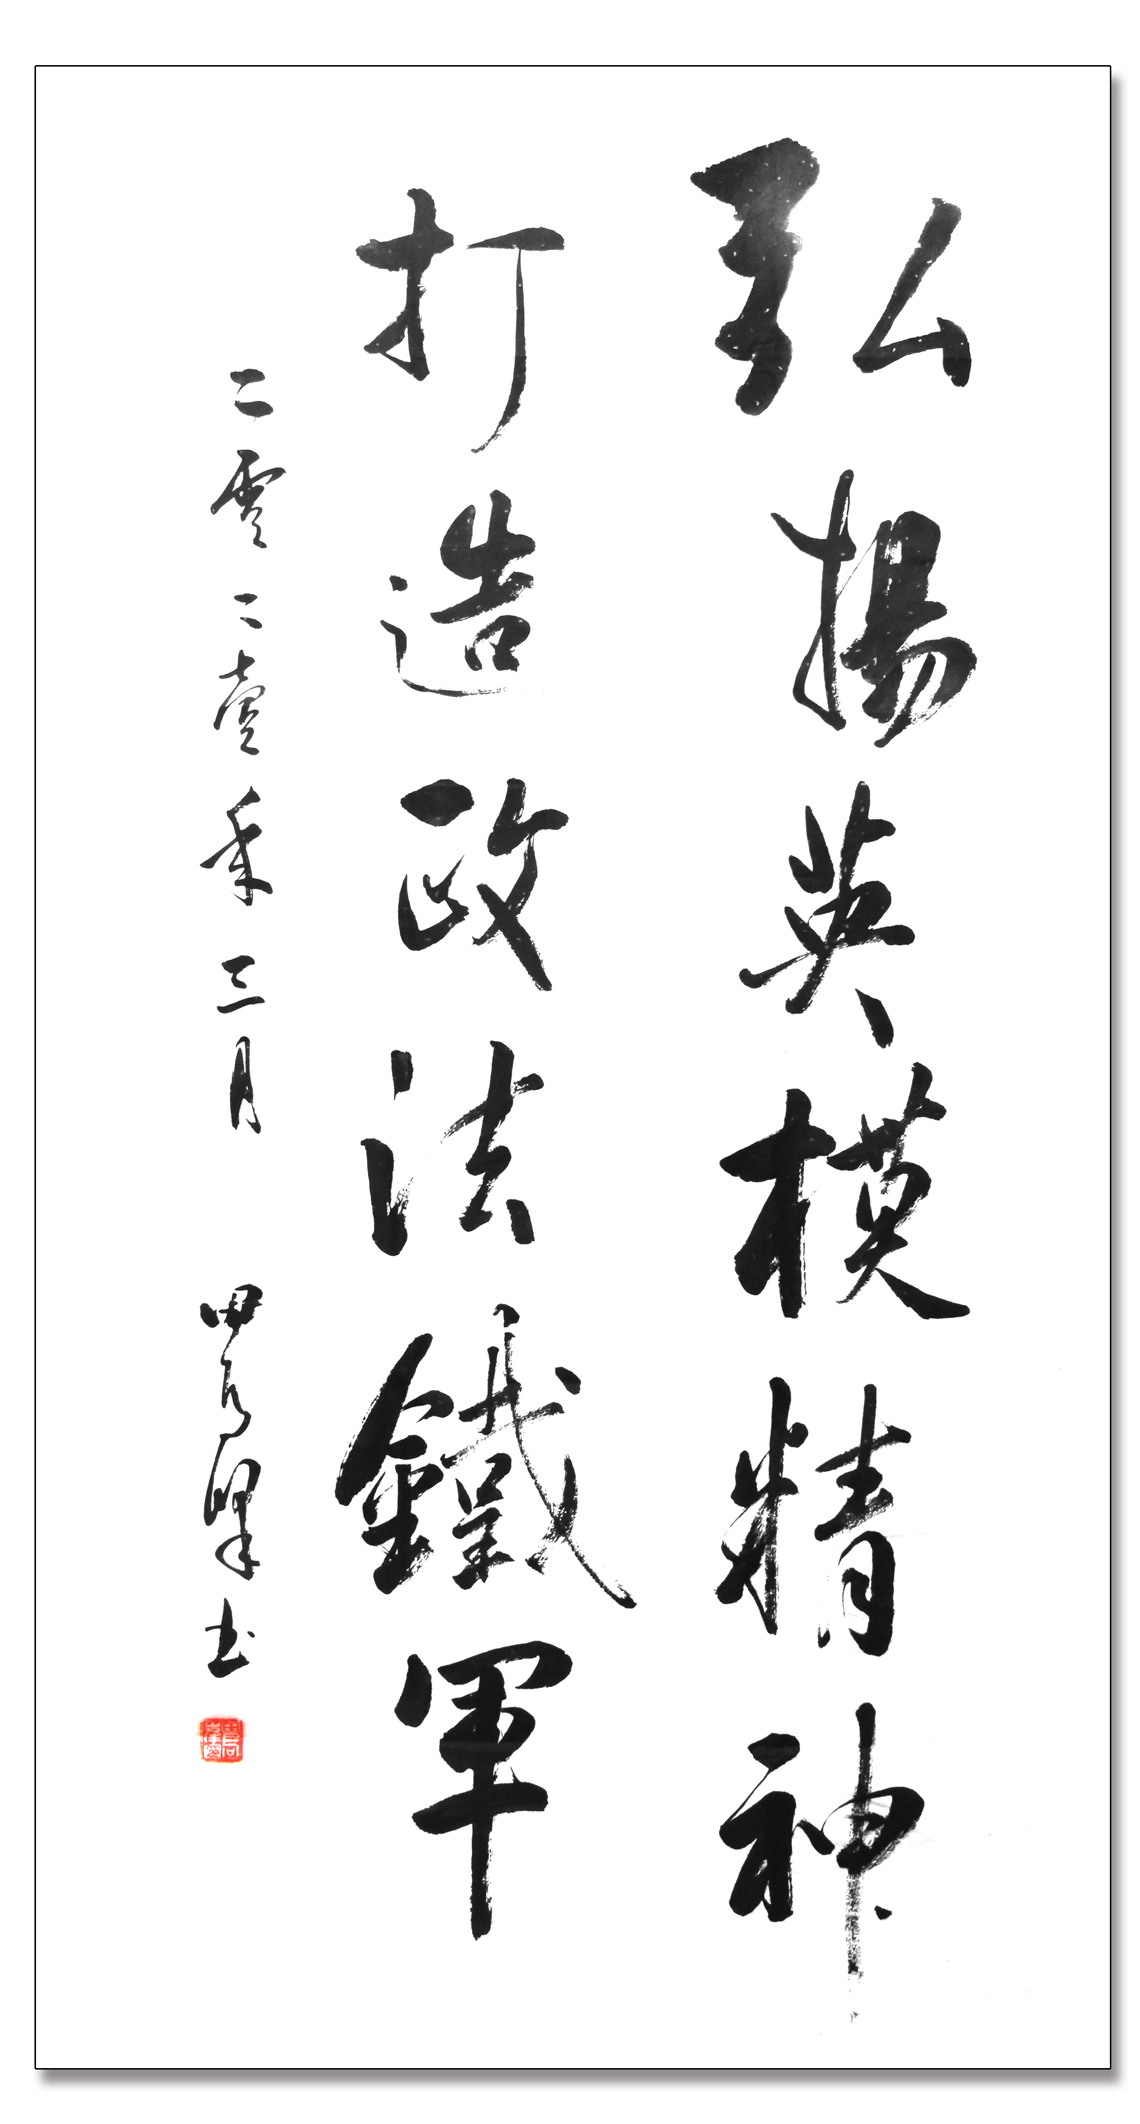 弘揚英模精神
打造政法鐵軍
二零二壹年三月 田 书